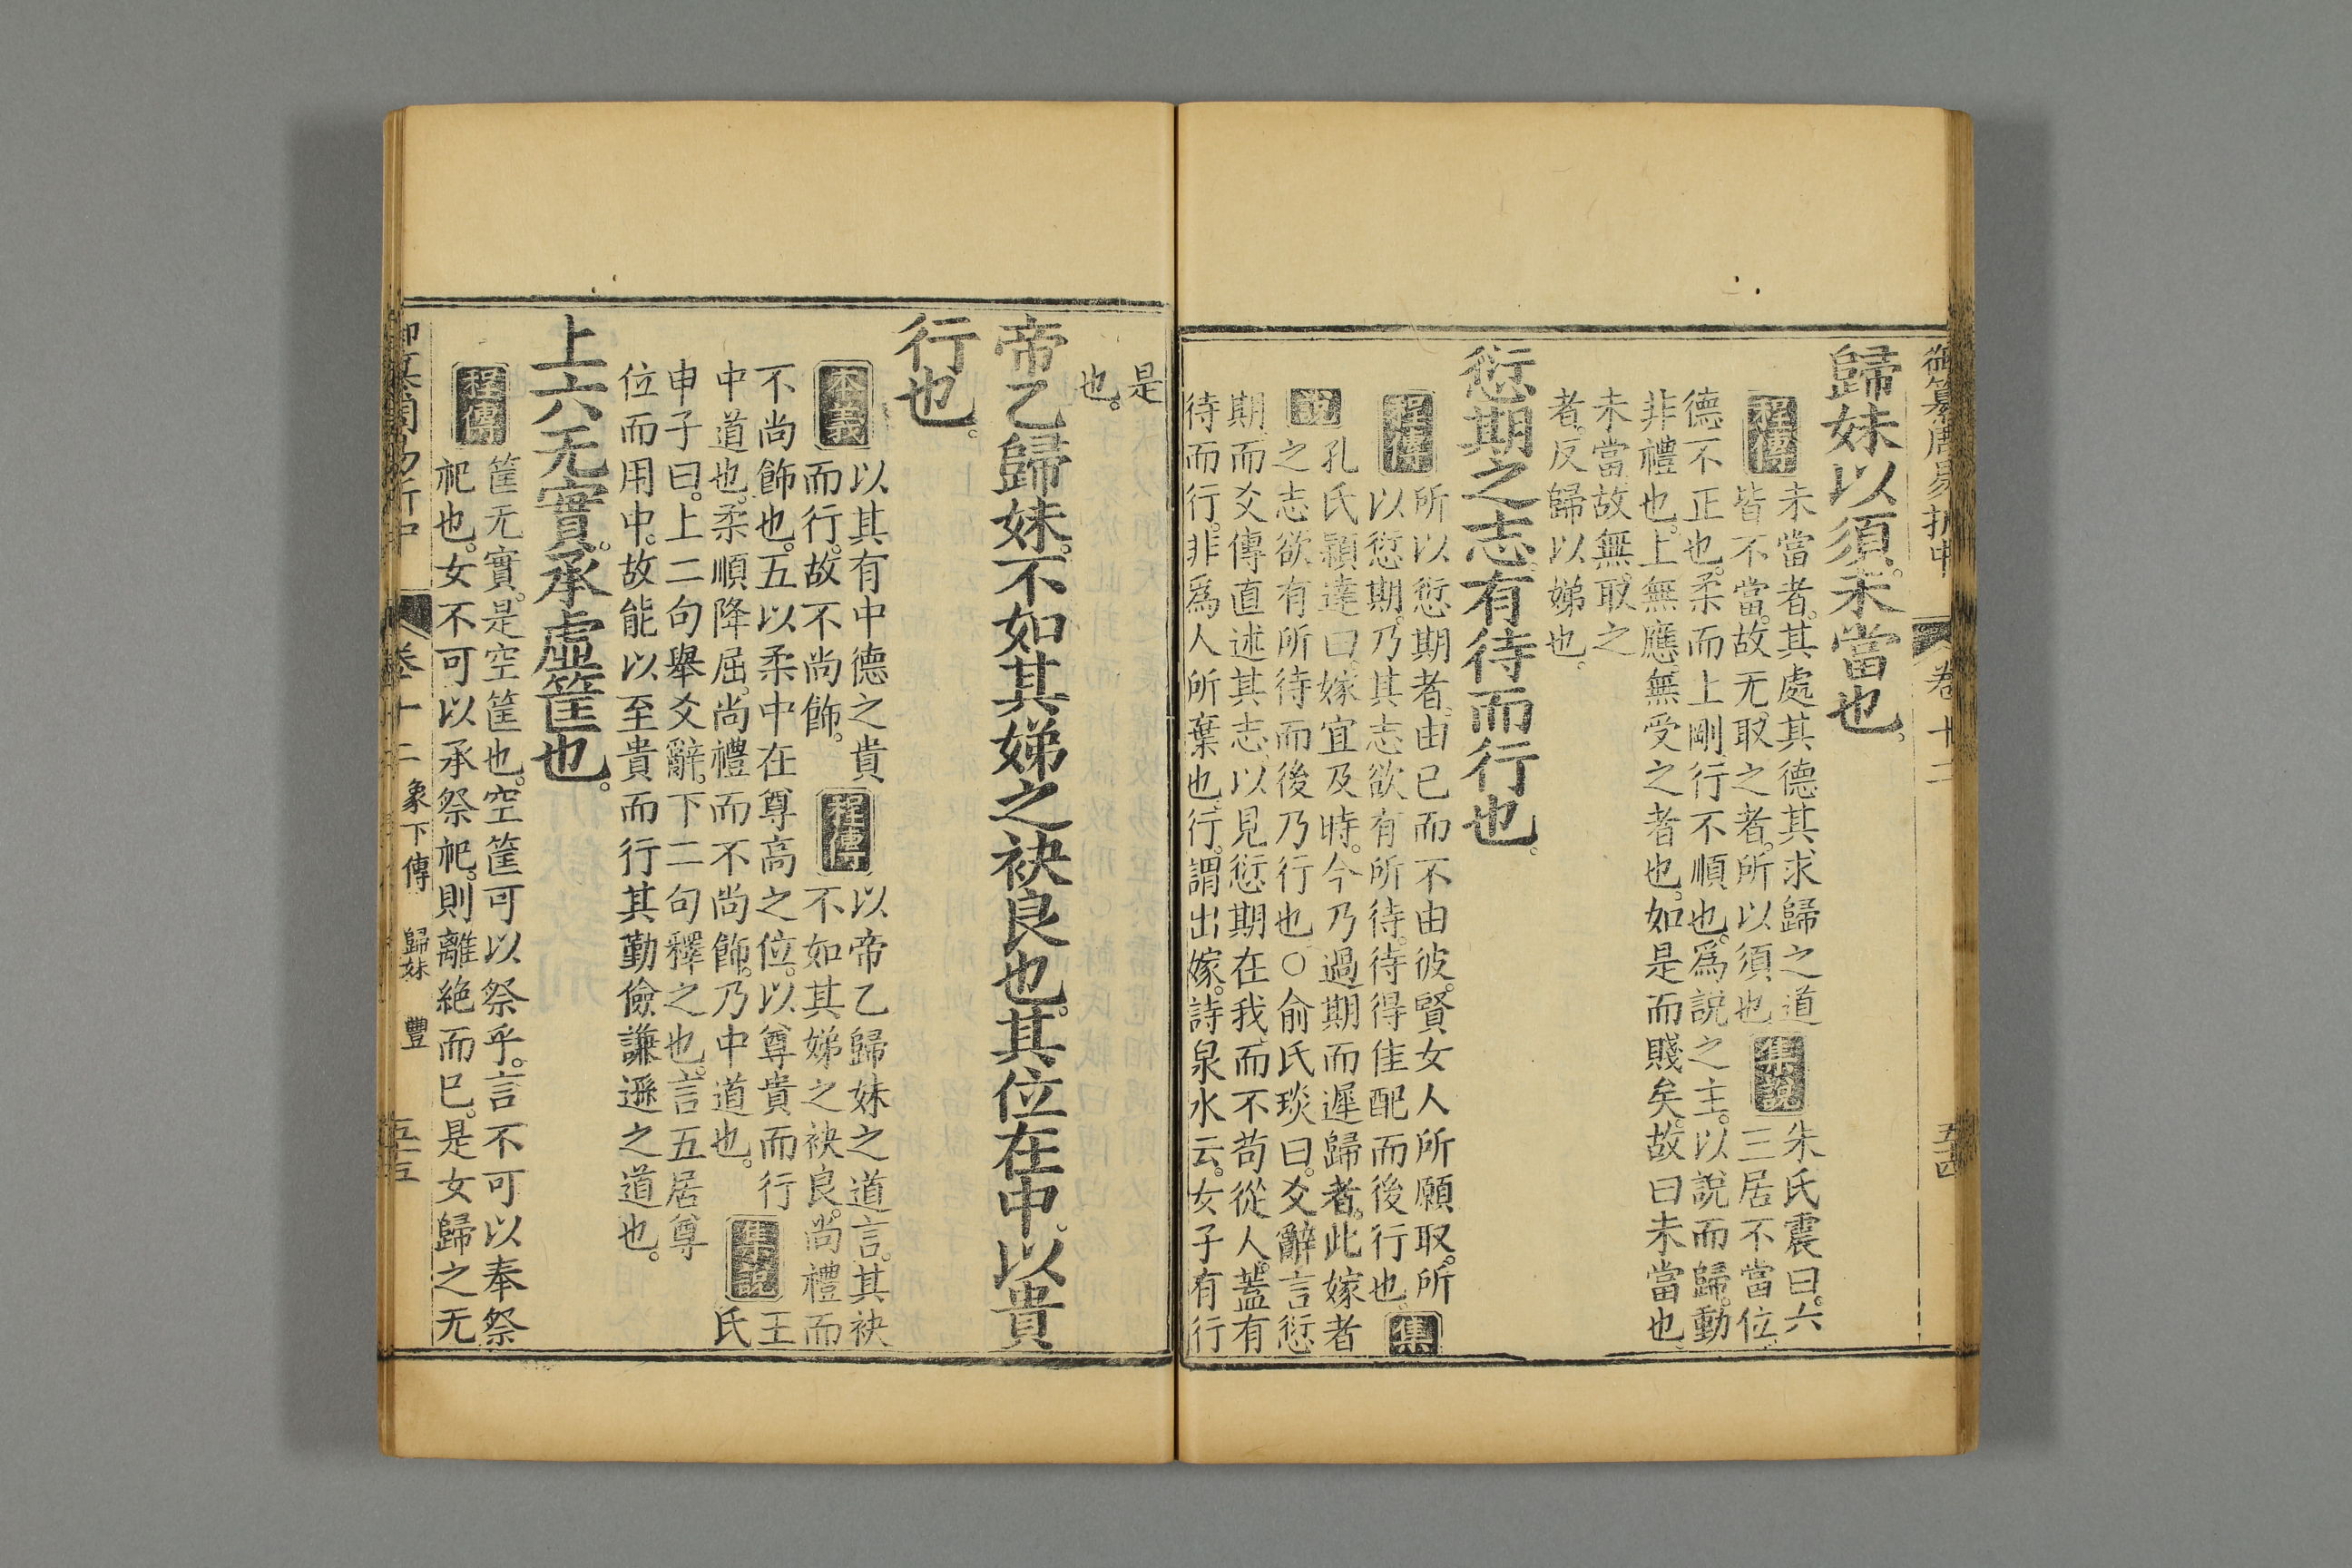 御纂周易折中
卷十二
五十四
歸妹以須。未當也。
程傳
未當者。其處其德其求歸之道
皆不當。故无取之者。所以須也
集說
朱氏震曰。六
三居不當位。
德不正也。柔而上剛。行不順也。爲說之主。以說而歸。動
非禮也。上無應。無受之者也。如是而賤矣。故曰未當也。
未當故無取之
者。反歸以娣也。
愆期之志。有待而行也。
程傳
所以愆期者。由已而不由彼。賢女人所願取。所
以愆期。乃其志欲有所待。待得佳配而後行也。
集
說
孔氏穎達曰。嫁宜及時。今乃過期而遲歸者。此嫁者
之志。欲有所待而後乃行也○俞氏琰曰。爻辭言愆
期。而爻傳直述其志。以見愆期在我。而不苟從人。蓋有
待而行。非爲人所棄也。行。謂出嫁。詩泉水云。女子有行
是
也。
帝乙歸妹。不如其娣之袂良也。其位在中。以貴
行也。
本義
以其有中德之貴
而行。故不尚飾。
程傳
以帝乙歸妹之道言。其袂
不如其娣之袂良。尚禮而
不尚飾也。五以柔中在尊高之位。以尊貴而行
中道也。柔順降屈。尚禮而不尚飾。乃中道也。
集說
王
氏
申子曰。上二句舉爻辭。下二句釋之也。言五居尊
位而用中。故能以至貴而行其勤儉謙遜之道也。
上六无實。承虛筐也。
程傳
筐无實。是空筐也。空筐可以祭乎。言不可以奉祭
祀也。女不可以承祭祀。則離絶而已。是女歸之无
御纂周易折中
卷十二
象下傳
歸妹
豐
五十五